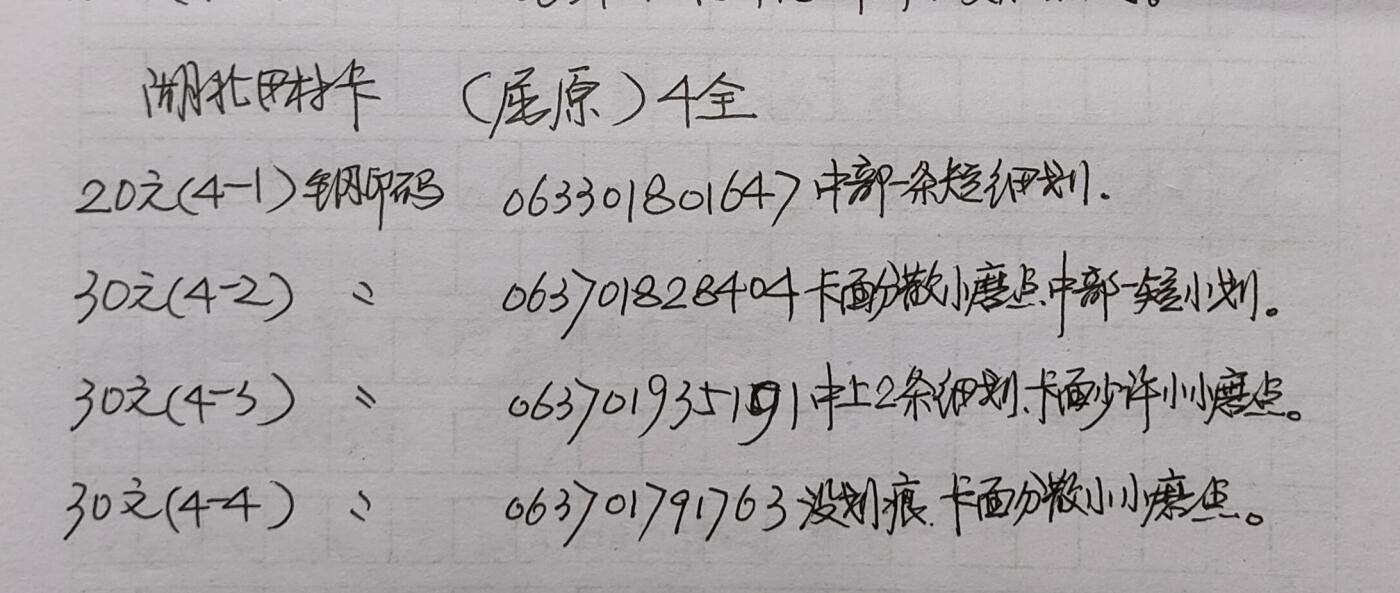 湖北田村卡 (屈原)4全
20元(4-1)钢印码 063301801647中部一条短细划.
30元(4-2) 〃 063701828404卡面分散小磨点.中部一短小划。
30元(4-3) 〃 063701935191中上2条细划.卡面少许小小磨点。
30元(4-4) 〃 063701791763没划痕.卡面分散小小磨点。